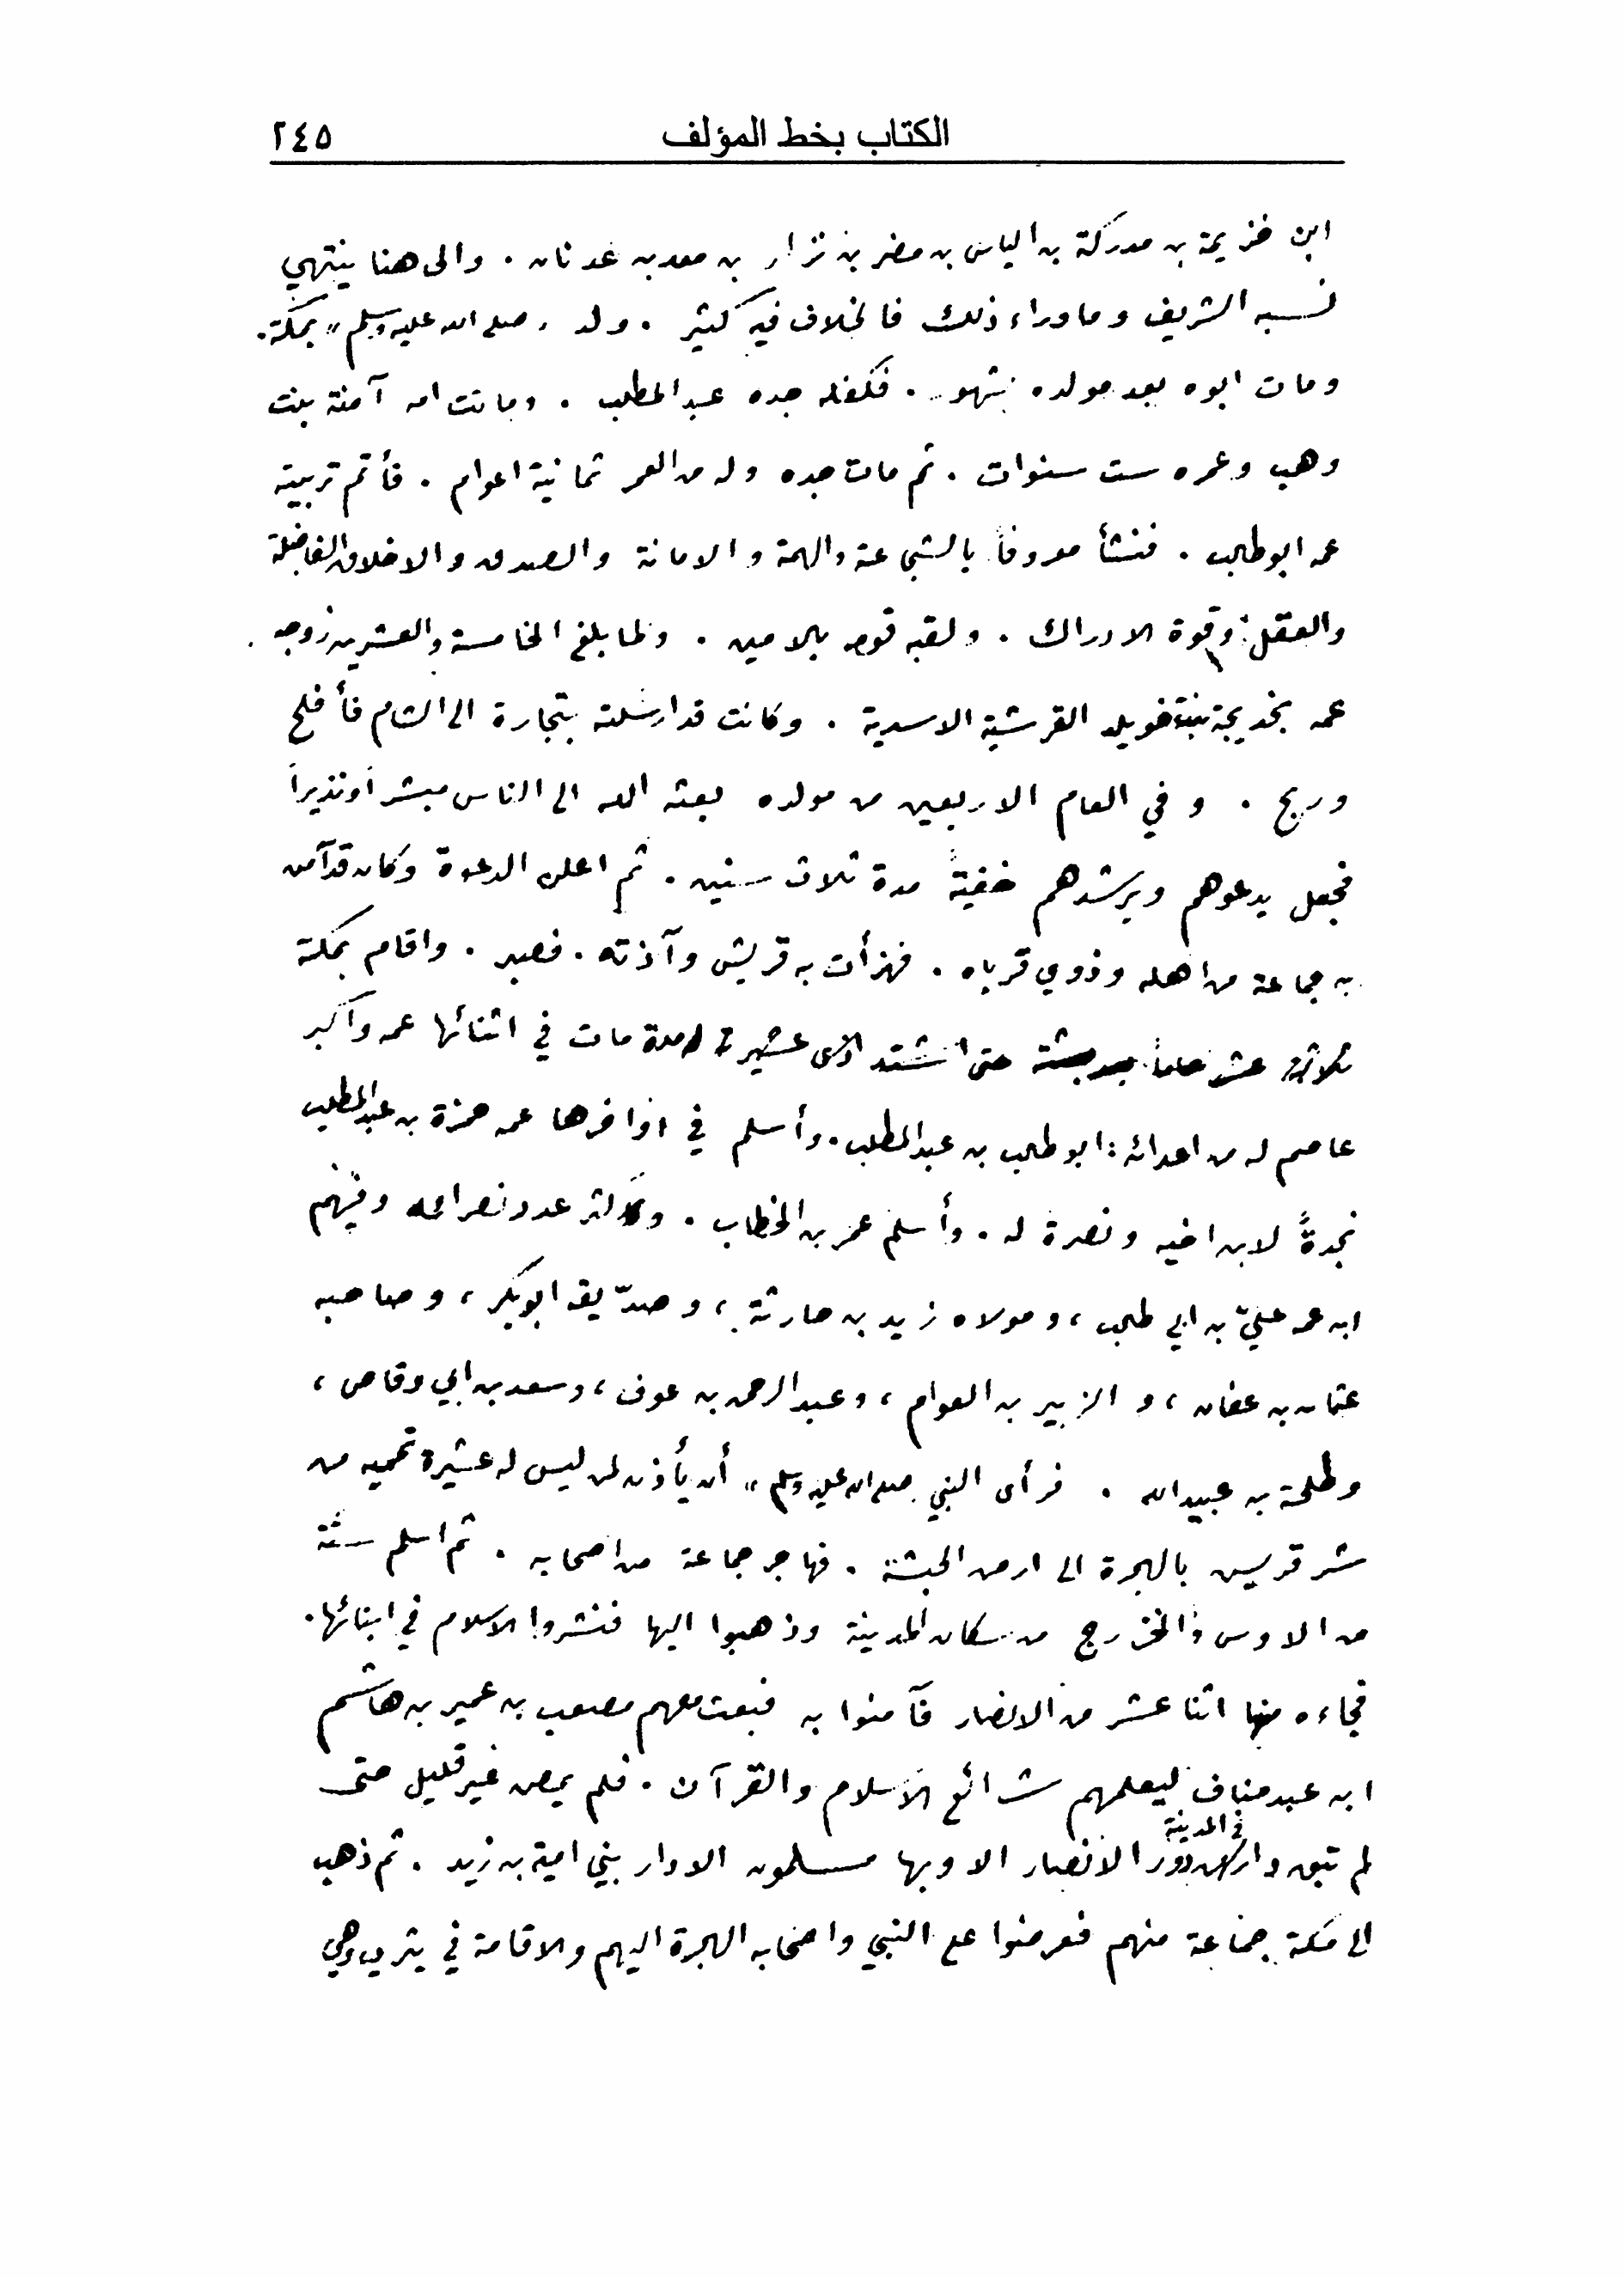 الكتاب بخط المؤلف ٢٤٥
ابن خزيمة بن مدركة بن الياس بن مضر بن نزار بن معد بن عدنان . والى هنا ينتهي
نسبه الشريف وما وراء ذلك فالخلاف فيه كثير . ولد « صلى الله عليه وسلم » بمكة .
ومات ابوه بعد مولده بشهور . فكفله جده عبد المطلب . وماتت امه آمنة بنت
وهب وعمره ست سنوات . ثم مات جده وله من العمر ثمانية اعوام . فأتم تربيته
عمه ابو طالب . فنشأ معروفاً بالشجاعة والهمة والامانة والصدق والاخلاق الفاضلة
والعقل وقوة الادراك . ولقبه قومه بالامين . ولما بلغ الخامسة والعشرين زوجه
عمه بخديجة بنت خويلد القرشية الاسدية . وكانت قد ارسلته بتجارة الى الشام فأفلح
وربح . وفي العام الاربعين من مولده بعثه الله الى الناس مبشراً ونذيراً
فجعل يدعوهم ويرشدهم خفيةً مدة ثلاث سنين . ثم اعلن الدعوة وكان قد آمن
به جماعة من اهله وذوي قرباه . فهزأت به قريش وآذته . فصبر . واقام بمكة
حتى اشتد مدة مات في اثنائها عمه واكبر
عاصم له من اعدائه : ابو طالب بن عبد المطلب . وأسلم في اواخرها عمه حمزة بن عبد المطلب
نجدةً لابن اخيه ونصرة له . وأسلم عمر بن الخطاب . وكثر عدد وفيهم
ابن عمه عليّ بن ابي طالب ، ومولاه زيد بن حارثة ، وصدّيقه ابو بكر ، وصاحبه
عثمان بن عفان ، والزبير بن العوام ، وعبد الرحمن بن عوف ، وسعد بن ابي وقاص ،
وطلحة بن عبيد الله . فرأى النبي صلى الله عليه وسلم » أن يأذن لمن ليس له عشيرة تحميه من
شر قريس بالهجرة الى ارض الحبشة . فهاجر جماعة من اصحابه . ثم اسلم ستة
من الاوس والخزرج من سكان المدينة وذهبوا اليها فنشروا الاسلام في ابنائها .
فجاءه منها اثنا عشر من الانصار فآمنوا به فبعث معهم مصعب بن عمير بن هاشم
ابن عبد مناف ليعلمهم شرائع الاسلام والقرآن . فلم يمض غير قليل حتى
في المدينة
لم تبق دار من دور الانصار الا وبها مسلمون الا دار بني امية بن زيد . ثم ذهب
الى مكة جماعة منهم فعرضوا على النبي واصحابه الهجرة اليهم والاقامة في يثرب وهي